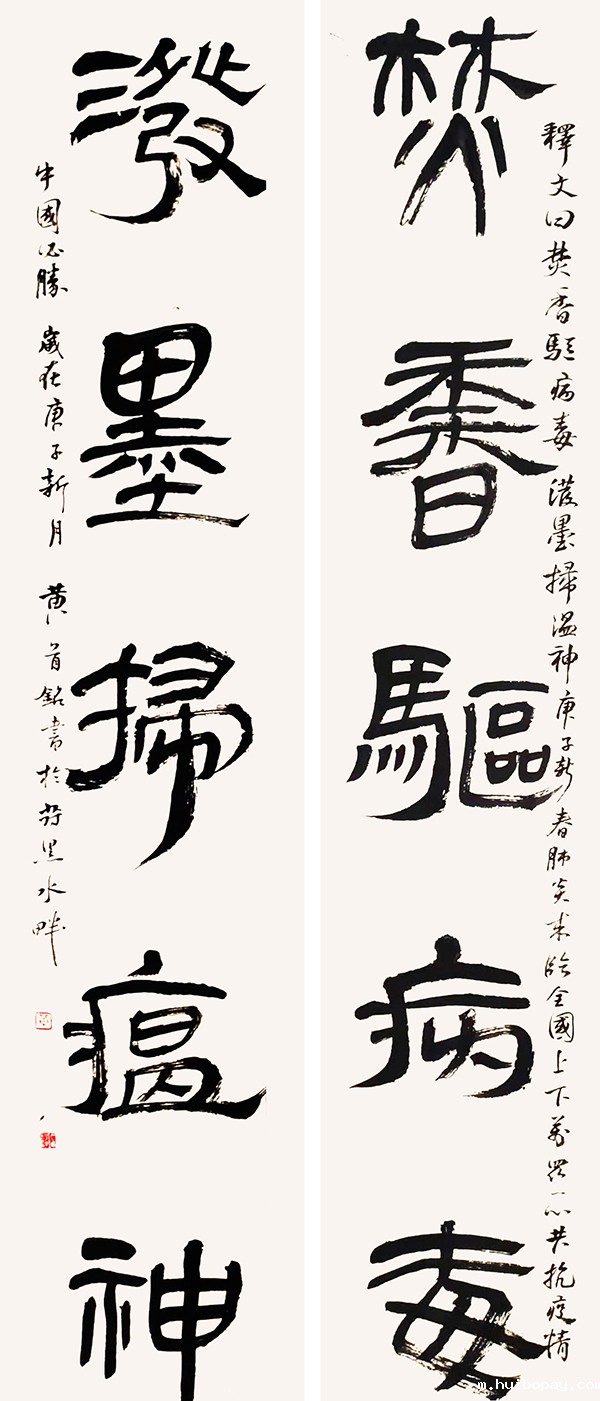 焚香驅病毒
釋文曰焚香驅病毒潑墨掃瘟神庚子新春肺炎來臨全國上下萬眾一心共抗疫情
潑墨掃瘟神
中國必勝 歲在庚子新月 黃首銘書於符黑水畔
m.huabopay.com